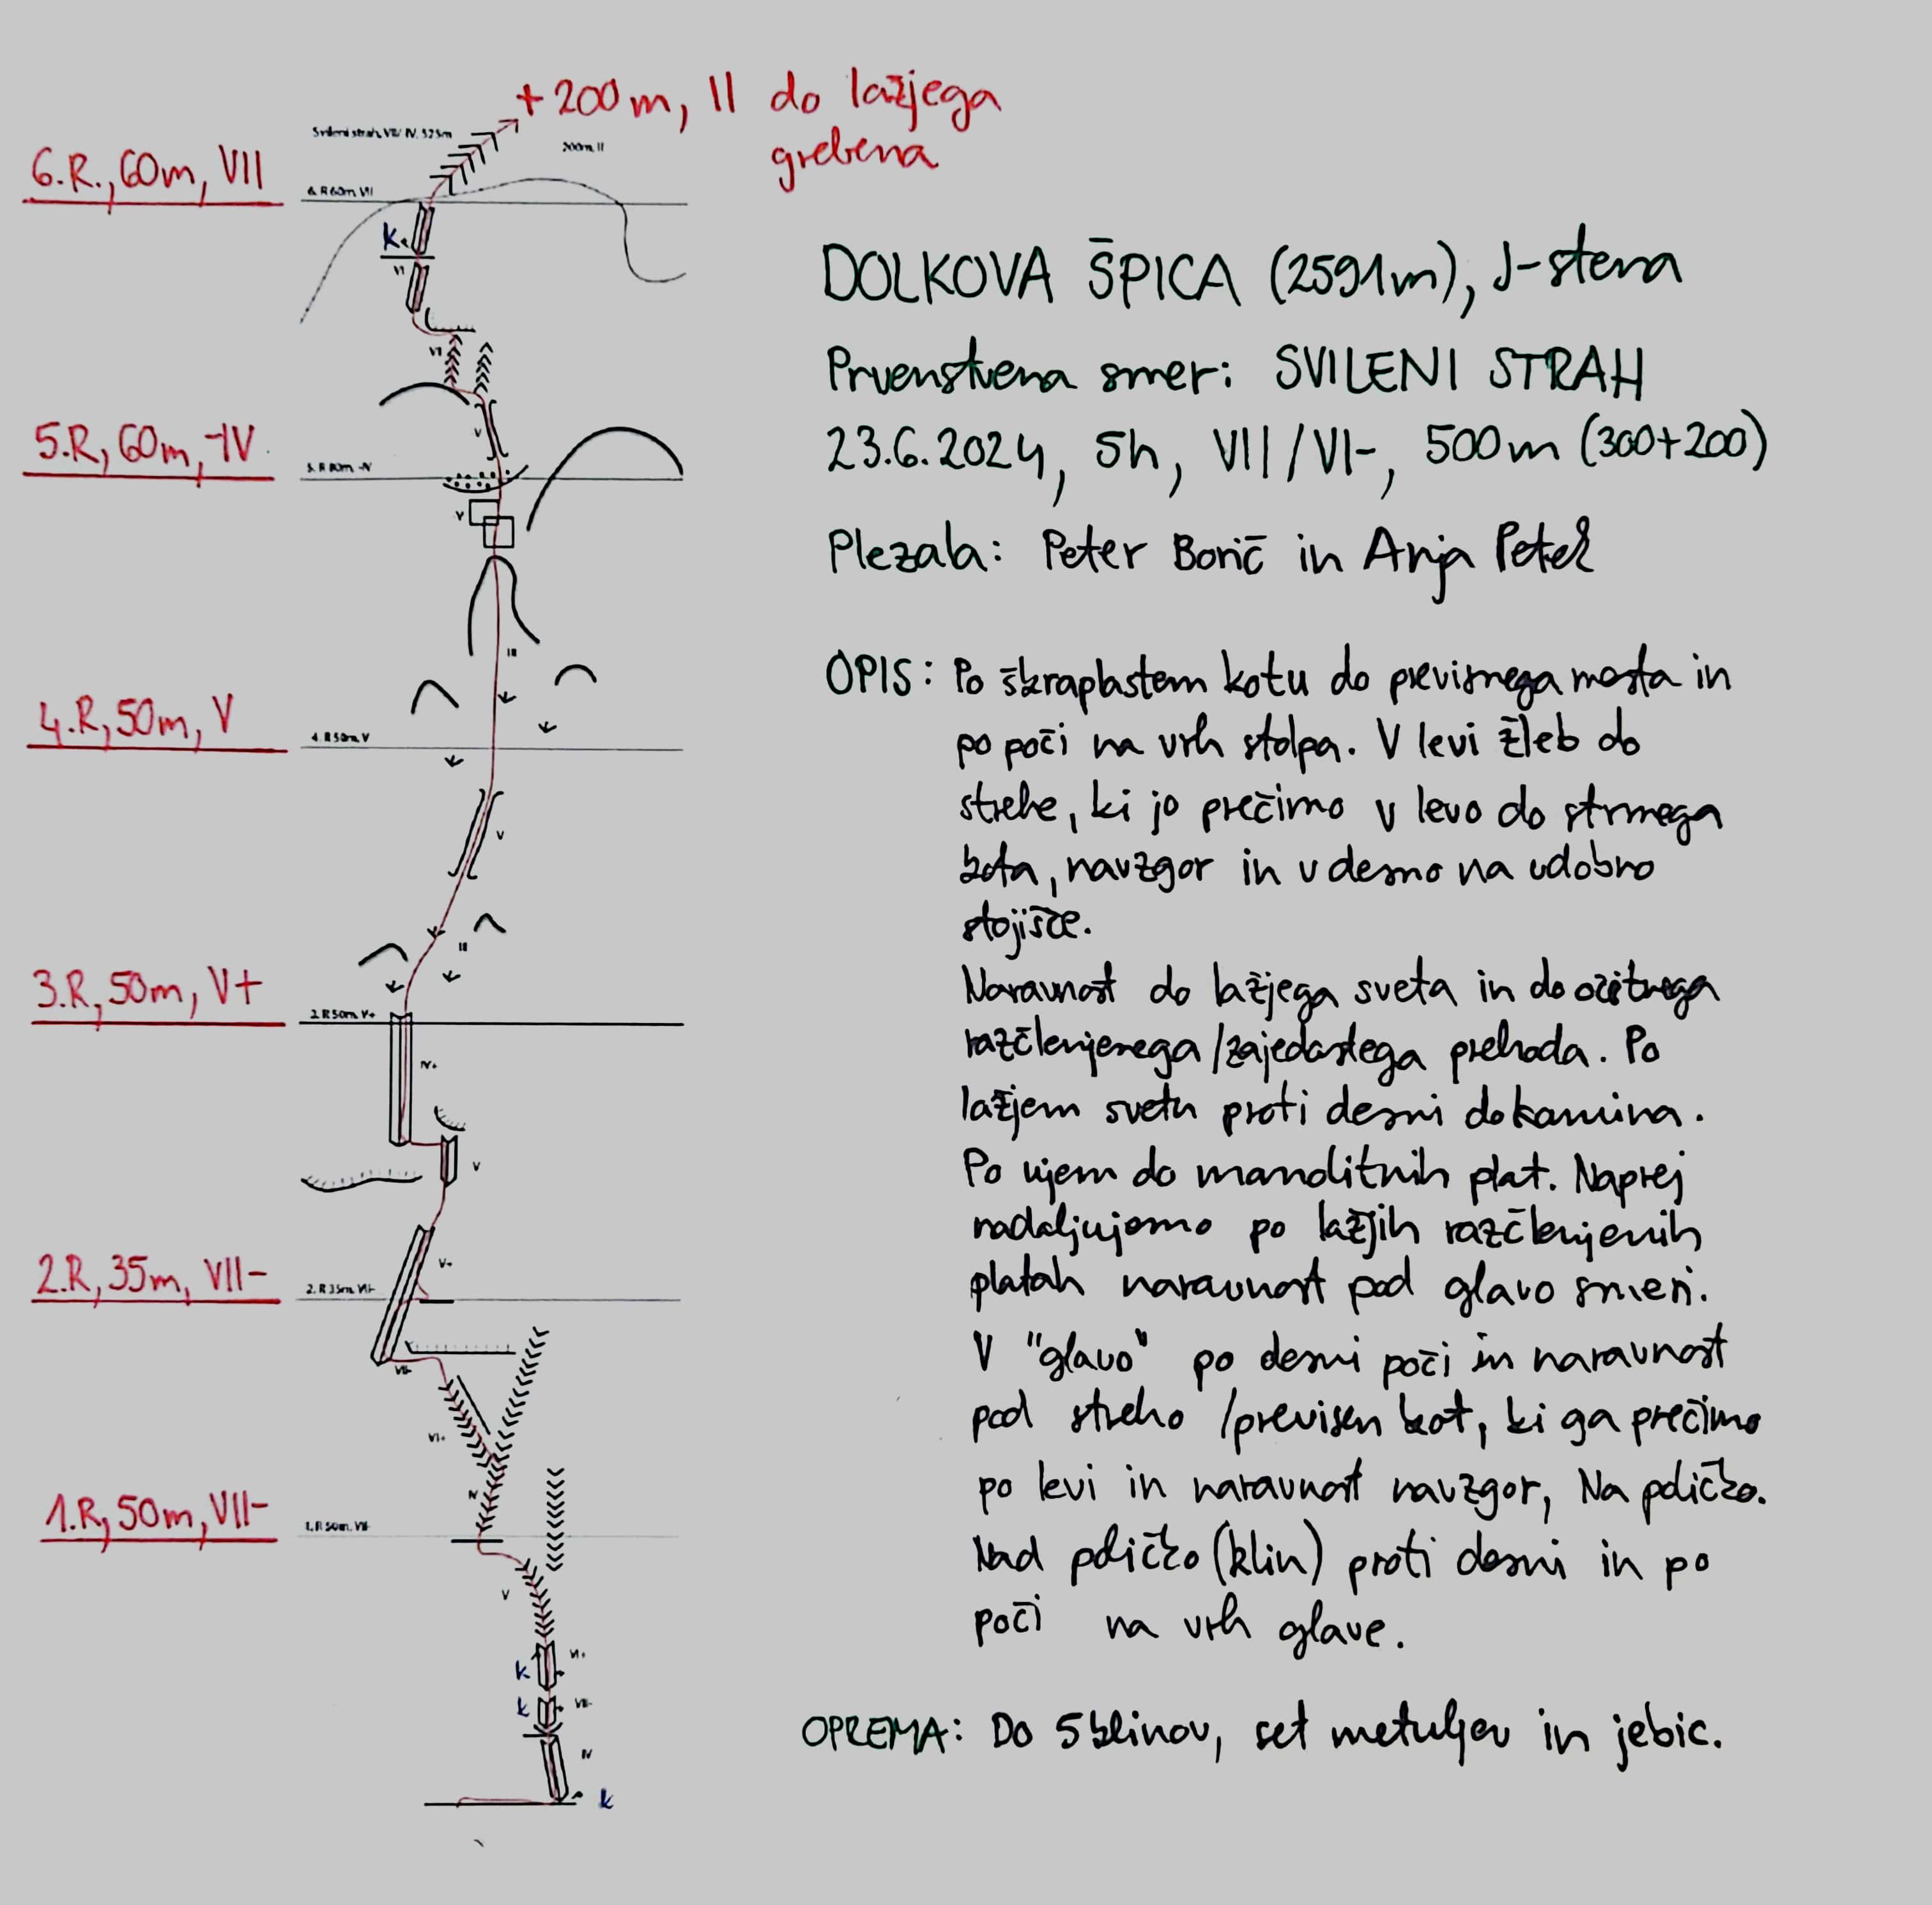 + 200m, II do lažjega
grebena
Svileni strah, VII/ IV, 525m
200m, II
6.R., 60m, VII
6. R 60m, VII
k
VI
VI
V
5.R, 60m, -IV
5. R 60m, -IV
V
III
4.R, 50m, V
4. R 50m, V
V
III
3.R, 50m, V+
2. R 50m, V+
IV+
V
2.R, 35m, VII-
V+
2. R 35m, VII-
VII-
VI+
IV
1.R, 50m, VII-
1. R 50m, VII-
V
k VI+
k VII-
IV
k
DOLKOVA ŠPICA (2591m), J-stena
Prvenstvena smer: SVILENI STRAH
23.6.2024, 5h, VII/VI-, 500m (300+200)
Plezala: Peter Borič in Anja Petek
OPIS: Po škraplastem kotu do previsnega mosta in
po poči na vrh stolpa. V levi žleb do
strehe, ki jo prečimo v levo do strmega
kota, navzgor in v desno na udobno
stojišče.
Naravnost do lažjega sveta in do očitnega
razčlenjenega/zajedastega prehoda. Po
lažjem svetu proti desni do kamina.
Po njem do manditnih plat. Naprej
nadaljujemo po lažjih razčlenjenih
platah naravnost pod glavo smeri.
V "glavo" po desni poči in naravnost
pod streho /previsen kot, ki ga prečimo
po levi in naravnost navzgor, Na poličko.
Nad poličko (klin) proti desni in po
poči na vrh glave.
OPREMA: Do 5 klinov, set metuljev in jebic.